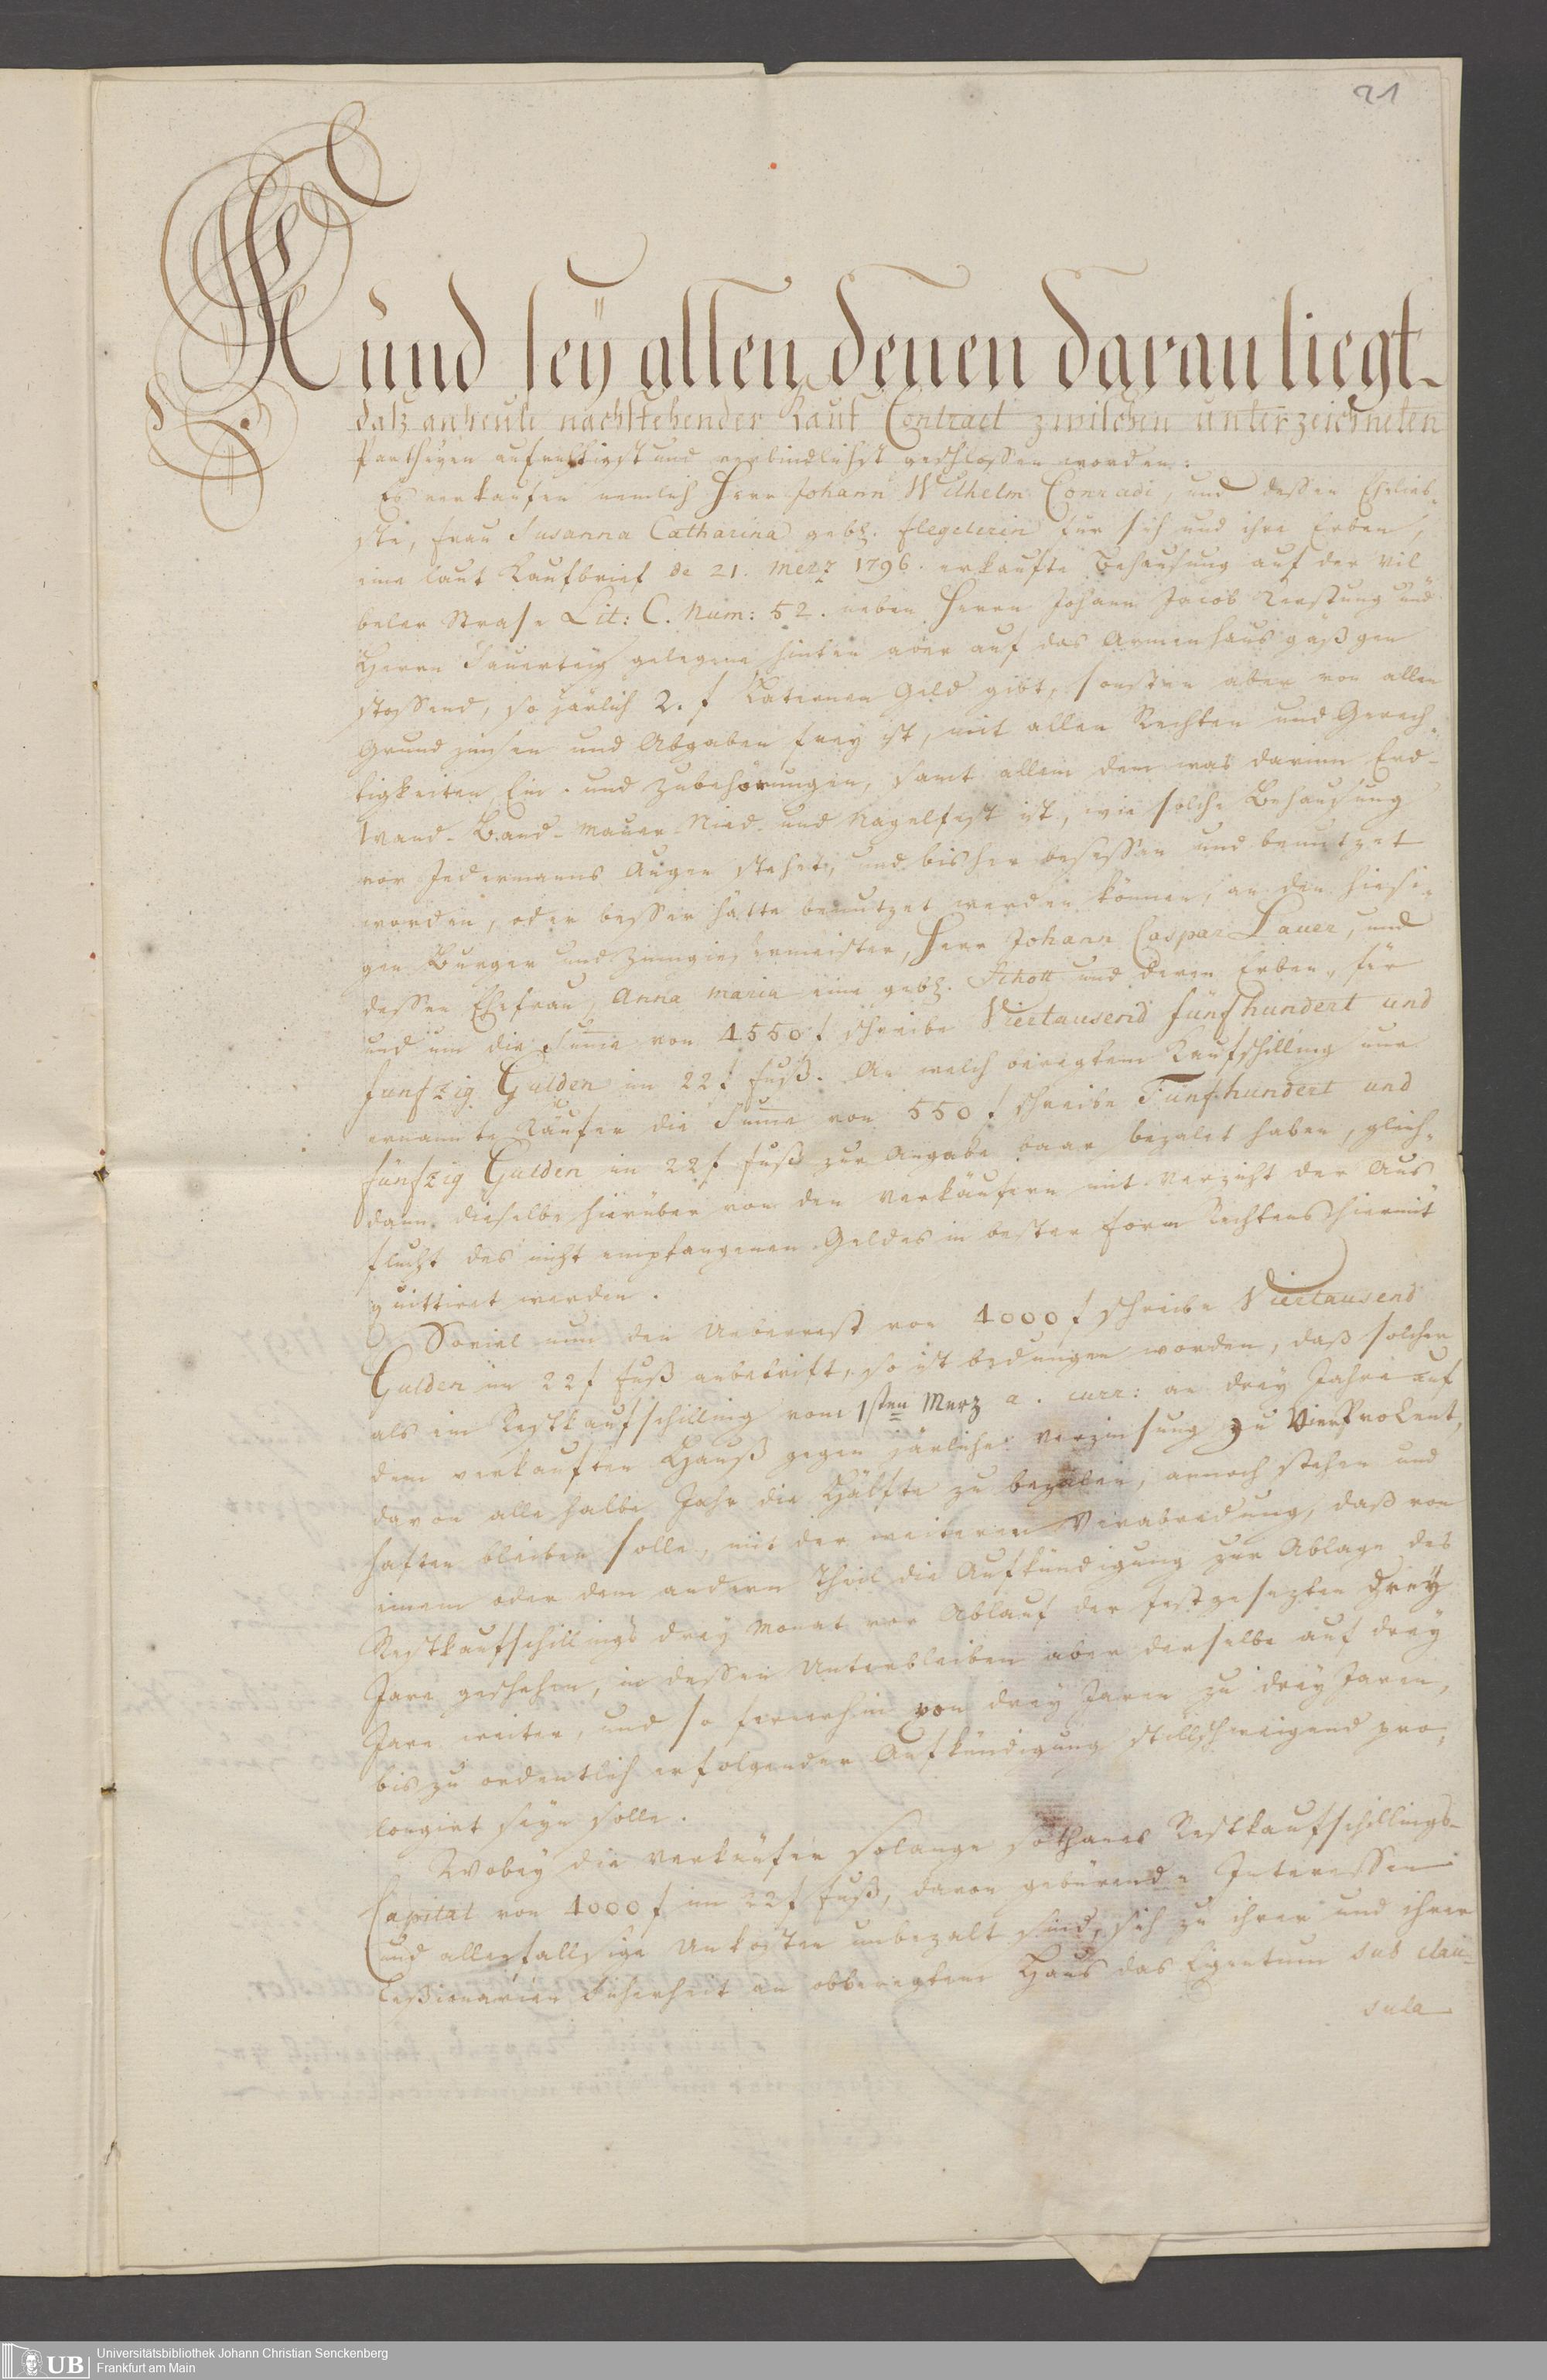 21
Kund seÿ allen denen daran liegt
daß anheute nachstehender Kauf Contract zwischen unterzeichneten
Partheyen aufrichtigst und verbindlichst geschlossen worden:
Es verkaufen nemlich Herr Johann Wilhelm Conradi, und dessen Eheliebste,
Frau Susanna Catharina geb. Flegelerin für sich und ihre Erben,
eine laut Kaufbrief de 21. Merz 1796. erkaufte Behausung auf der Vil
beler Strase Lit: C. Num: 52. neben Herrn Johann Jacob und
Herrn Sauerteig gelegene hinten aber auf das Armenhaus gäßgen
stossend, so järlich 2. f Laternen Geld gibt, sonsten aber von allen
Grundzinsen und Abgaben frey ist, mit allen Rechten und Gerech-
tigkeiten, Ein- und Zubehörungen, samt allem dem was darinn Erd-
Wand- Band- Mauer- Nied- und Nagelfest ist, wie solche Behausung
vor Jedermanns Augen stehet, und bisher besessen und benutzet
worden, oder besser hätte benutzet werden können, an den hiesi-
gen Burger und Zinngiesermeister, Herr Johann Caspar Lauer, und
dessen Ehefrau, Anna Maria eine geb. Schott und deren Erben, für
und um die Summe von 4550 f schreibe Viertausend fünfhundert und
funfzig Gulden im 22 f Fuß. An welch beregtem Kaufschilling nun
ernannte Käufer die Summe von 550 f schreibe Fünfhundert und
fünfzig Gulden im 22 f Fuß zur Angabe baar bezalet haben, gleich-
dann dieselbe hierüber von den Verkäufern mit Verzicht der Aus-
flucht des nicht empfangenen Geldes in bester Form Rechtens hiermit
quittiret werden.
Soviel nun den Ueberrest von 4000 f schreibe Viertausend
Gulden im 22 f Fuß anbetrift, so ist bedungen worden, daß solcher
als ein Restkaufschilling vom 1sten Merz a. curr: an drey Jahre auf
dem verkauften Hauß gegen järliche Verzinsung zu Vier ProCent,
davon alle halbe Jahr die Hälfte zu bezalen, annoch stehen und
haften bleiben solle, mit der weiteren Verabredung, daß von
einem oder dem andern Theil die Aufkündigung zur Ablage des
Restkaufschillings drey Monat vor Ablauf der festgesezten drey
Jare geschehen, in dessen Unterbleiben aber derselbe auf drey
Jare weiter, und so fernerhin von drey Jaren zu drey Jaren,
bis zu ordentlich erfolgender Aufkündigung stillschweigend pro-
longirt seyn solle.
Wobey die Verkäufer solange sothanes Restkaufschillings-
Capital von 4000 f im 22 f Fuß, davon gebürende Interessen
und allenfallsige Unkosten unbezalt sind, sich zu ihrer und ihrer
Cessionarien Sicherheit an obberegtem Haus das Eigentum sub clau-
sula
UB Universitätsbibliothek Johann Christian Senckenberg
Frankfurt am Main